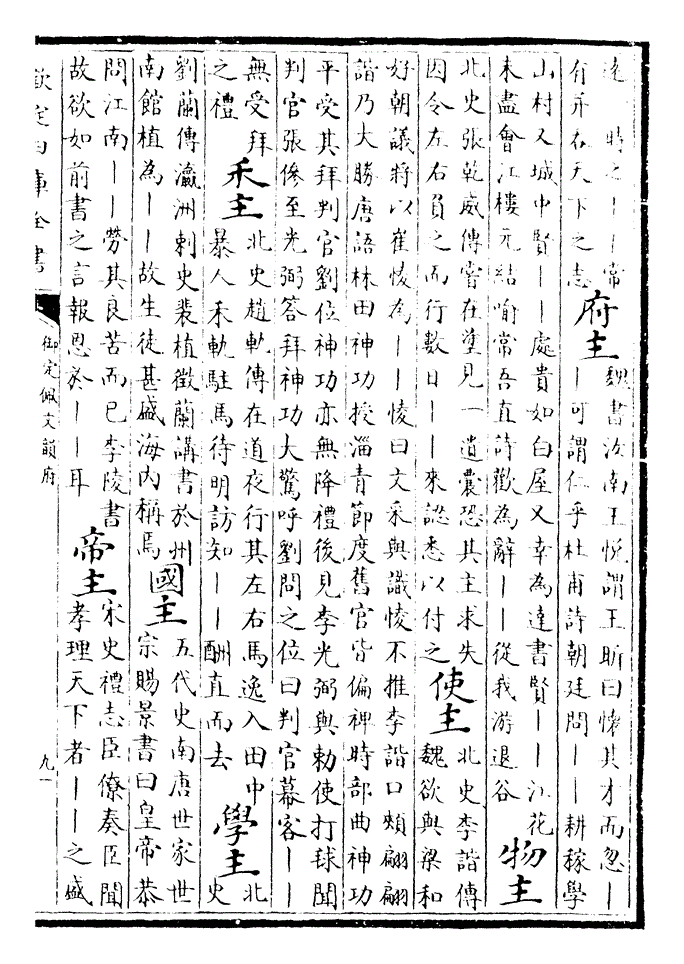 逺一時之丨丨帝
有并在天下之志
府主
魏書汝南王悦謂王昕曰懷其才而忽丨
丨可謂仁乎杜甫詩朝廷問丨丨耕稼學
山村又城中賢丨丨處貴如白屋又幸為達書賢丨丨江花
未盡會江樓元結喻常吾直詩歡為辭丨丨從我游退谷
物主
北史張乾威傳嘗在塗見一遺囊恐其主求失
因令左右負之而行數日丨丨來認悉以付之
使主
北史李諧傳
魏欲與梁和
好朝議將以崔㥄為丨丨㥄曰文采與識㥄不推李諧口頰翩翩
諧乃大勝唐語林田神功授淄青節度舊官皆偏裨時部曲神功
平受其拜判官劉位神功亦無降禮後見李光弼與勅使打球聞
判官張傪至光弼答拜神功大驚呼劉問之位曰判官幕客丨丨
無受拜
之禮
禾主
北史趙軌傳在道夜行其左右馬逸入田中
暴人禾軌駐馬待明訪知丨丨酬直而去
學主
北
史
劉蘭傳瀛洲刺史裴植徵蘭講書於州
南館植為丨丨故生徒甚盛海内稱焉
國主
五代史南唐世家世
宗賜景書曰皇帝恭
問江南丨丨勞其良苦而已李陵書
故欲如前書之言報恩於丨丨耳
帝主
宋史禮志臣僚奏臣聞
孝理天下者丨丨之盛
欽定四庫全書
御定佩文韻府
九一